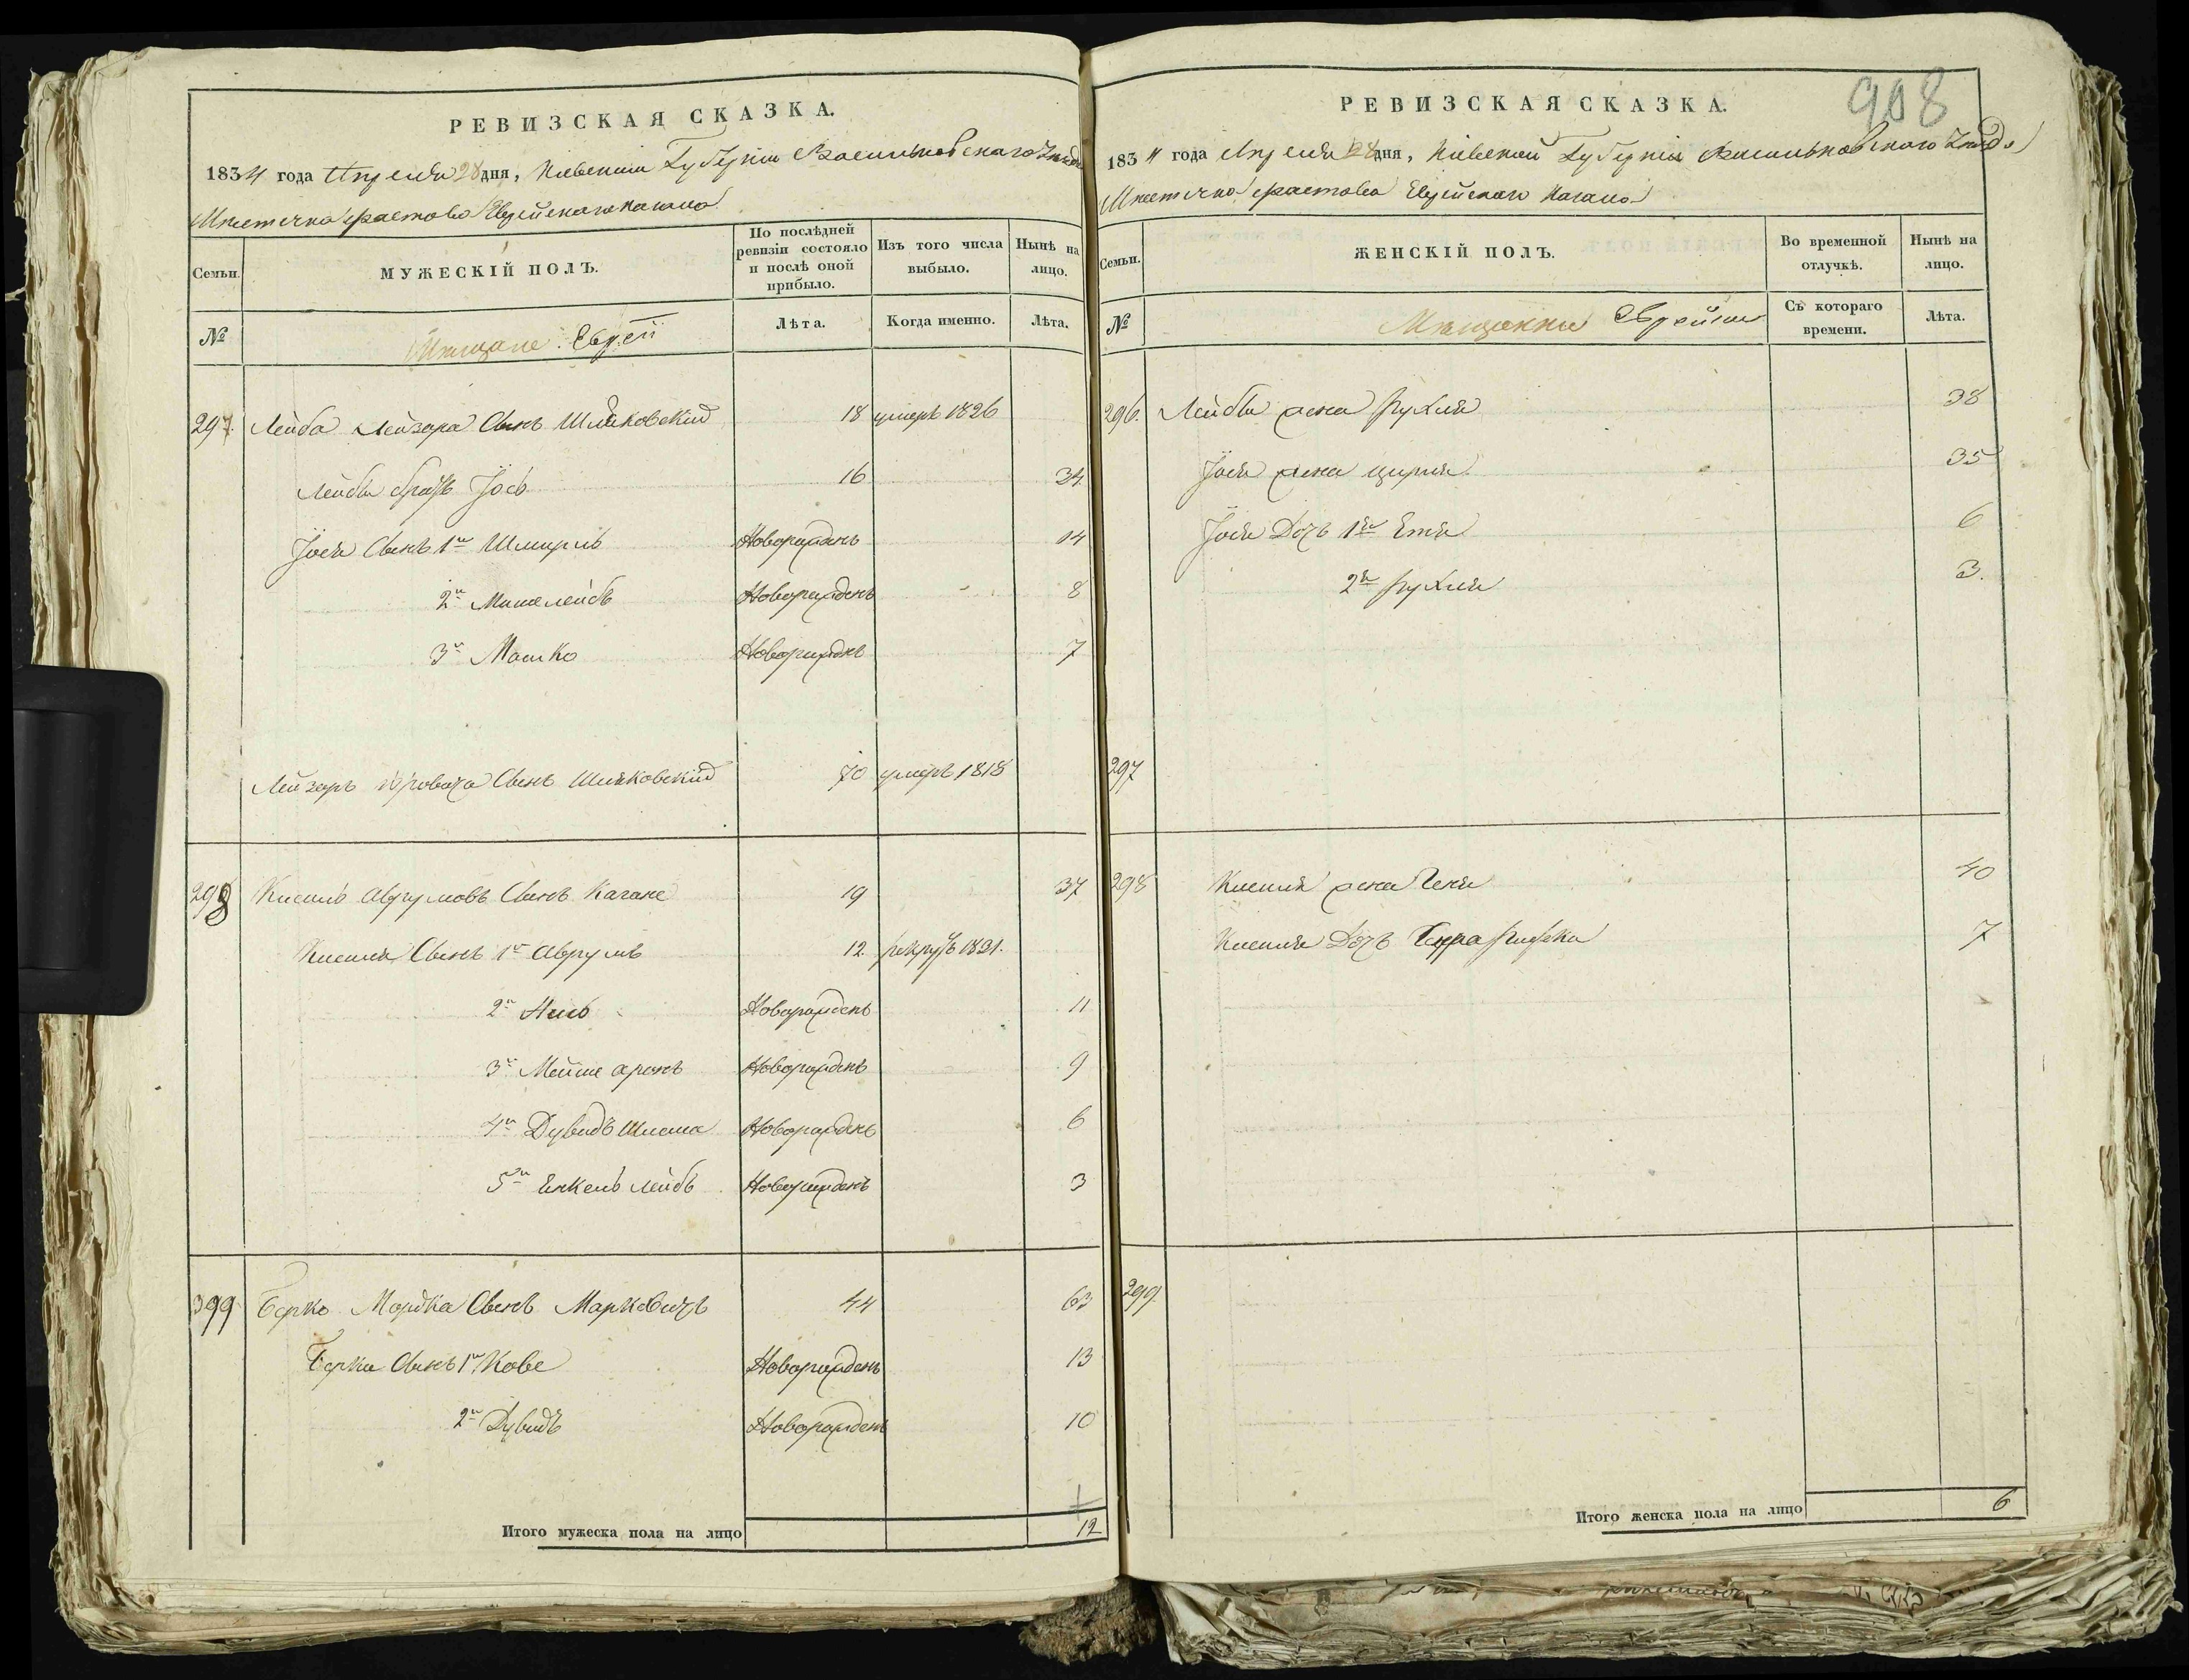 РЕВИЗСКАЯ СКАЗКА.
1834 года Апреля 28 дня, Кіевской Губерніи Васильковского Уезда
Мѣстечка Фастова Еврейского Кагала
Семьи.
МУЖЕСКІЙ ПОЛЪ.
По послѣдней ревизіи состояло и послѣ оной прибыло.
Изъ того числа выбыло.
Нынѣ на лицо.
№
Мѣщане Евреи
Лѣта.
Когда именно.
Лѣта.
297. Лейба Лейзора Сынъ Шляковскій 18 умеръ 1826
Лейбы братъ Іось 16 34
Іося Сынъ 1й Шмириль Новорожденъ 14
2й Мошелейбъ Новорожденъ 8
3й Мошко Новорожденъ 7
Лейзоръ Сынъ Шляковскій 70 умеръ 1818
298 Кисиль Аврумовъ Сынъ Кагане 19 37
Кисиля Сынъ 1й Аврумъ 12. рекрутъ 1831.
2й 11 Новорожденъ
3й Мейше Аронъ Новорожденъ 9
4й Дувидъ Шлома Новорожденъ 6
5й Енкель Лейбъ Новорожденъ 3
399 Берко Мордка Сынъ Марковичъ 44 63
Берки Сынъ 1й Кове Новорожденъ 13
2й Дувидъ Новорожденъ 10
Итого мужеска пола на лицо 12
908
РЕВИЗСКАЯ СКАЗКА.
1834 года Апреля 28 дня, Кіевской Губерніи Васильковского Уезда
Мѣстечка Фастова Еврейского Кагала
Семьи.
ЖЕНСКІЙ ПОЛЪ.
Во временной отлучкѣ.
Нынѣ на лицо.
№
Мѣщанки Еврейки
Съ котораго времени.
Лѣта.
296. Лейбы жена Рухля 38
Іося жена Цирля 35
Іося Дочь 1я Етя 6
2я Рухля 3.
297
298 Кисиля жена Геня 40
Кисиля Дочь Сурра Ривка 7
299
Итого женска пола на лицо 6